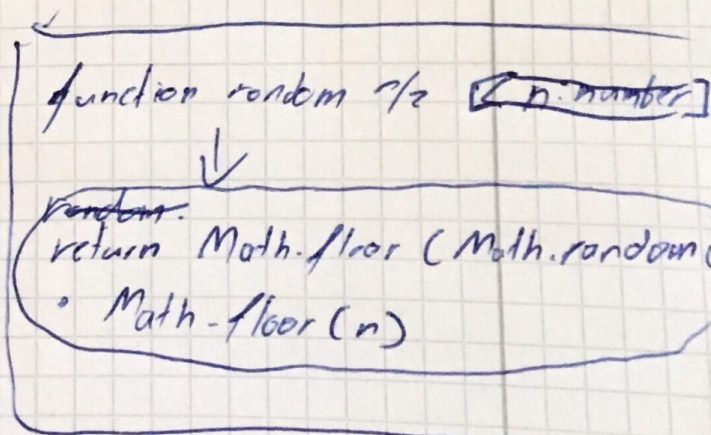 function random [n: number]
random.
return Math.floor (Math.random(
• Math.floor(n)